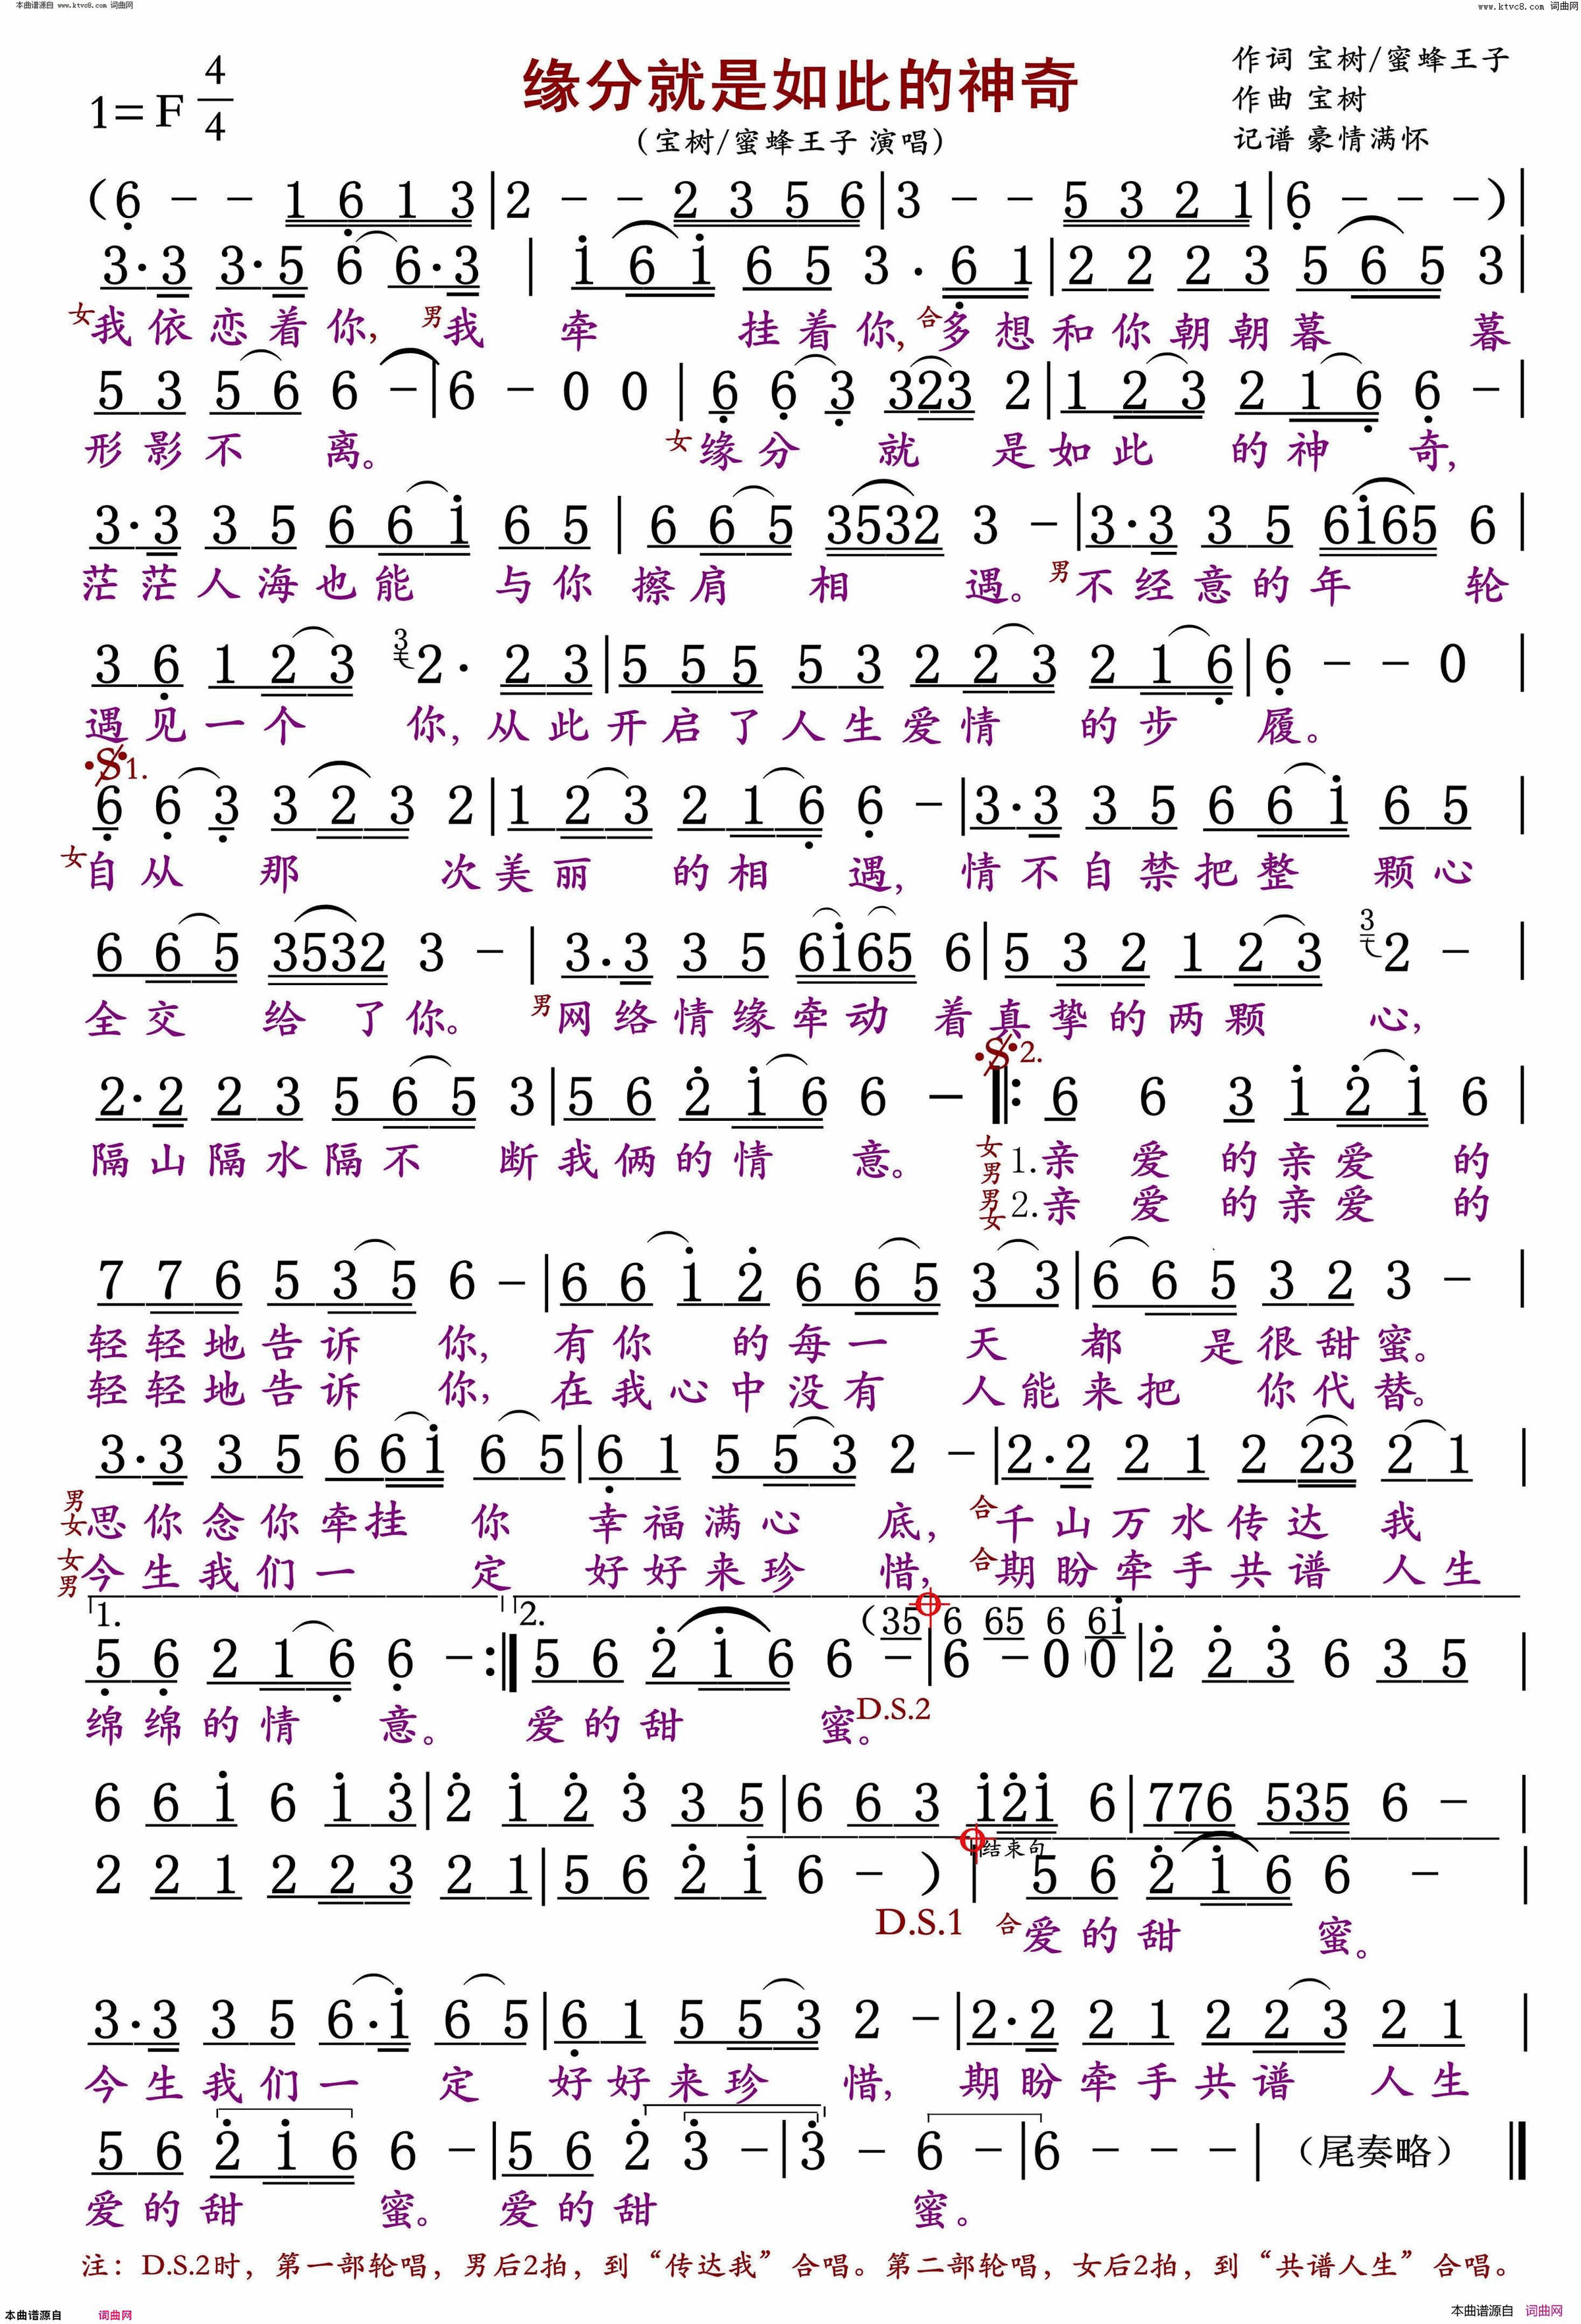 本曲谱源自 www.ktvc8.com 词曲网
www.ktvc8.com 词曲网
1=F 4/4
缘分就是如此的神奇
（宝树/蜜蜂王子 演唱）
作词 宝树/蜜蜂王子
作曲 宝树
记谱 豪情满怀
（6 - - 1 6 1 3|2 - - 2 3 5 6|3 - - 5 3 2 1|6 - - -）|
3·3 3·5 6 6·3 | i 6 i 6 5 3 · 6 1|2 2 2 3 5 6 5 3|
女我依恋着你，男我 牵 挂着你，合多想和你朝朝暮 暮
5 3 5 6 6 -|6 - 0 0 |6 6 3 323 2|1 2 3 2 1 6 6 -|
形影不 离。 女缘分 就 是如此 的神 奇，
3·3 3 5 6 6 i 6 5 |6 6 5 3532 3 -|3·3 3 5 6i65 6|
茫茫人海也能 与你 擦肩 相 遇。男不经意的年 轮
3 6 1 2 3 3 2· 2 3|5 5 5 5 3 2 2 3 2 1 6|6 - - 0 |
遇见一个 你，从此开启了人生爱情 的步 履。
𝄋1.
6 6 3 3 2 3 2|1 2 3 2 1 6 6 -|3·3 3 5 6 6 i 6 5 |
女自从 那 次美丽 的相 遇，情不自禁把整 颗心
6 6 5 3532 3 - |3·3 3 5 6i65 6|5 3 2 1 2 3 3 2 - |
全交 给 了你。 男网络情缘牵动 着真挚的两颗 心，
𝄋2.
2·2 2 3 5 6 5 3|5 6 2 i 6 6 - 𝄆 6 6 3 i 2 i 6 |
隔山隔水隔不 断我俩的情 意。 女男1.亲 爱 的亲爱 的
男女2.亲 爱 的亲爱 的
7 7 6 5 3 5 6 -|6 6 i 2 6 6 5 3 3|6 6 5 3 2 3 - |
轻轻地告诉 你， 有你 的每一 天 都 是很甜蜜。
轻轻地告诉 你， 在我心中没有 人能来把 你代替。
3·3 3 5 6 6i 6 5|6 1 5 5 3 2 -|2·2 2 1 2 23 2 1 |
男女思你念你牵挂 你 幸福满心 底，合千山万水传达 我
女男今生我们一 定 好好来珍 惜，合期盼牵手共谱 人生
1. 2. （35 6 65 6 6i
5 6 2 1 6 6 - :‖5 6 2 i 6 6 -|6 - 0 0|2 2 3 6 3 5 |
绵绵的情 意。 爱的甜 蜜。D.S.2
6 6 i 6 i 3|2 i 2 3 3 5|6 6 3 i2i 6|776 535 6 - |
结束句
2 2 1 2 2 3 2 1|5 6 2 i 6 - ）| 5 6 2 i 6 6 - |
D.S.1 合爱的甜 蜜。
3·3 3 5 6·i 6 5|6 1 5 5 3 2 -|2·2 2 1 2 2 3 2 1 |
今生我们一 定 好好来珍 惜， 期盼牵手共谱 人生
5 6 2 i 6 6 -|5 6 2 3 -|3 - 6 -|6 - - -|（尾奏略）‖
爱的甜 蜜。 爱的甜 蜜。
注：D.S.2时，第一部轮唱，男后2拍，到“传达我”合唱。第二部轮唱，女后2拍，到“共谱人生”合唱。
本曲谱源自 词曲网
本曲谱源自 词曲网